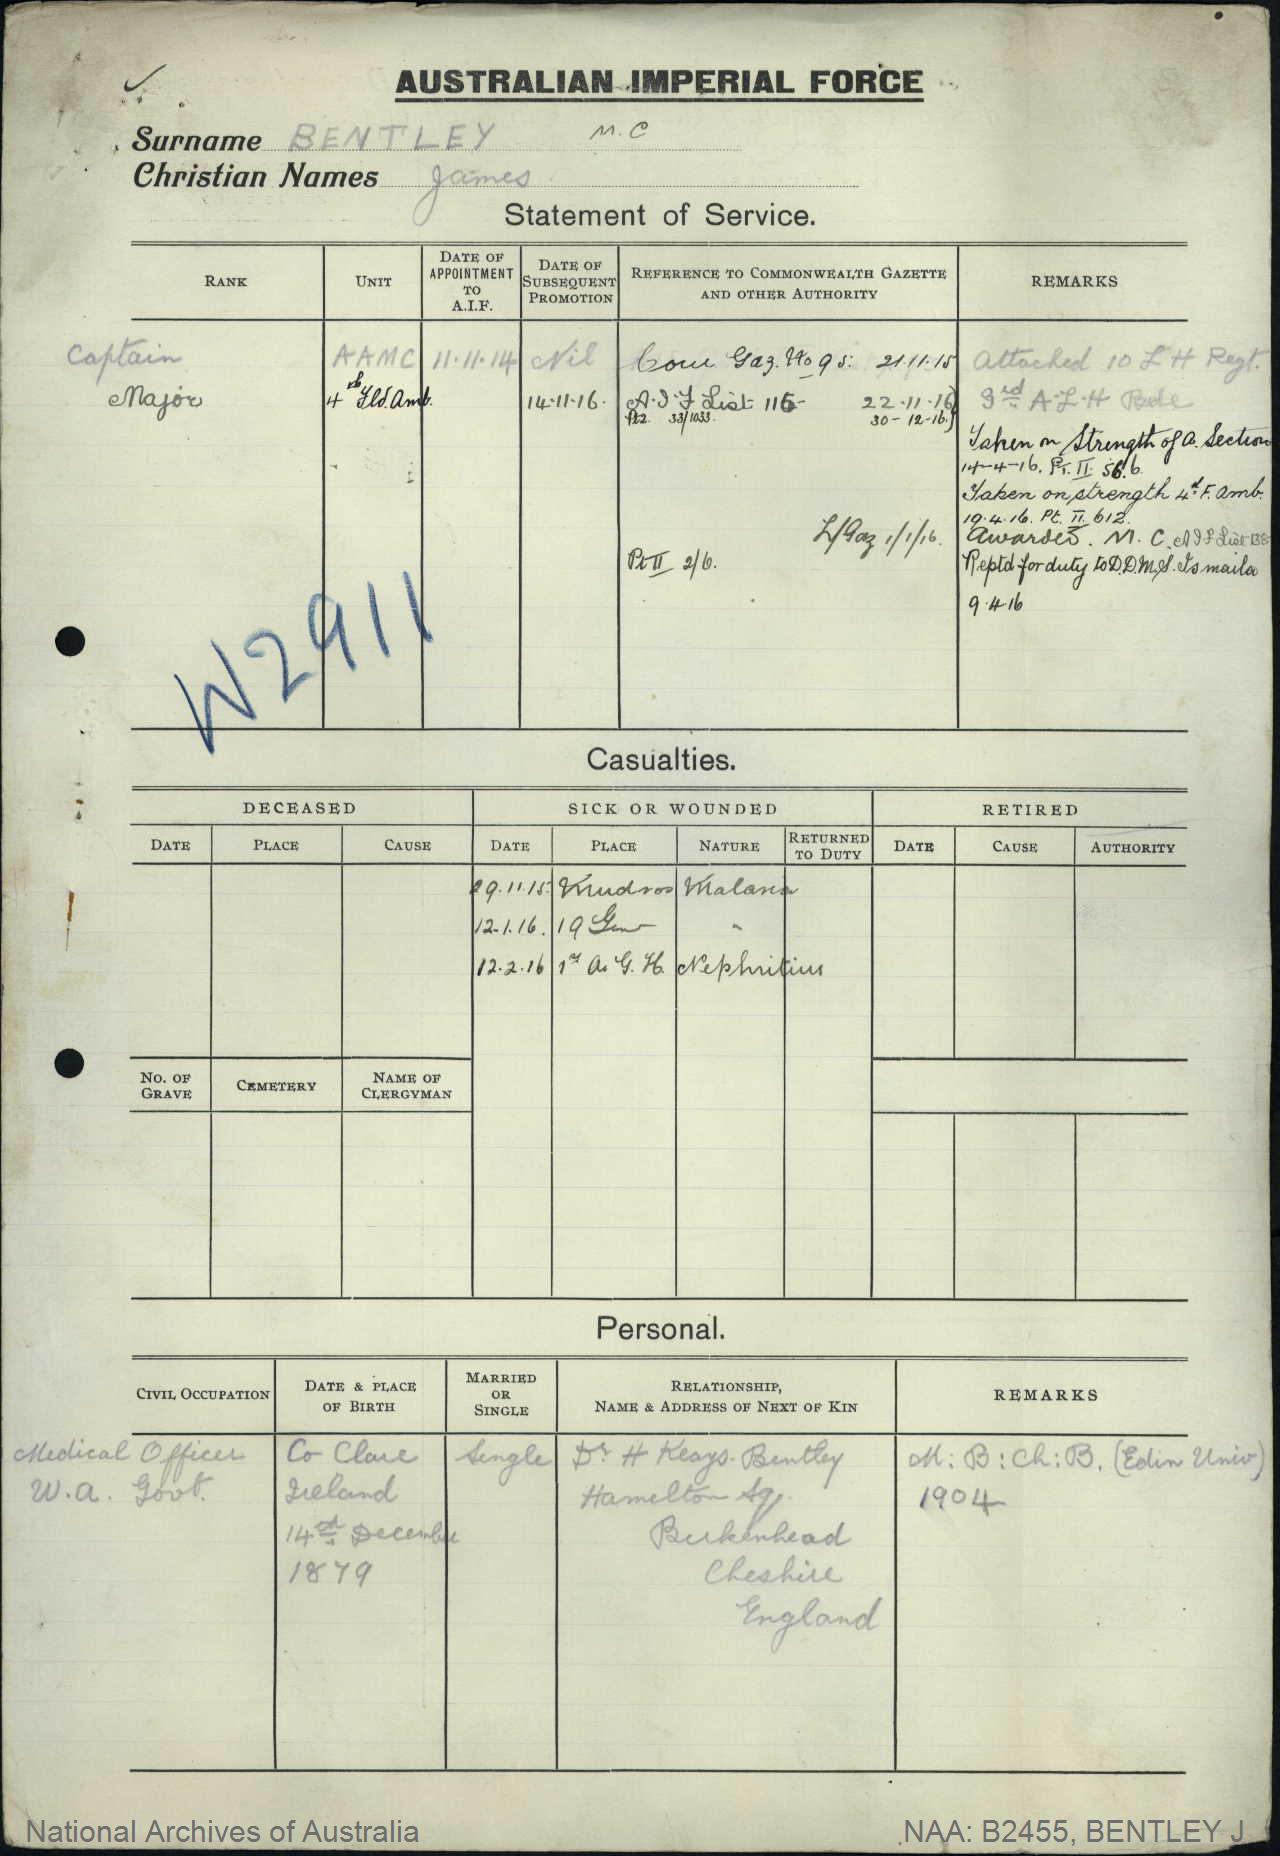 AUSTRALIAN IMPERIAL FORCE
Surname BENTLEY M.C
Christian Names James
Statement of Service.
RANK
UNIT
DATE OF APPOINTMENT TO A.I.F.
DATE OF SUBSEQUENT PROMOTION
REFERENCE TO COMMONWEALTH GAZETTE AND OTHER AUTHORITY
REMARKS
Captain AAMC 11.11.14 Nil Com Gaz. No 95: 21.11.15 Attached 10 L H Regt.
Major 4th Fld. Amb. 14.11.16. A.I.F List 115 22.11.16 3rd A.L.H Bde
Pt2. 33/1033. 30-12-16.
Taken on Strength of A. Section
14-4-16. Pt. II 56.6.
Taken on strength 4th F. Amb.
19.4.16. Pt. II 612.
L/Gaz 1/1/16. Awarded. M. C. A I F List 138
Pt II 2/6. Reptd for duty to D.D.M.S. Ismaila
9.4.16
W2911
Casualties.
DECEASED
SICK OR WOUNDED
RETIRED
DATE PLACE CAUSE DATE PLACE NATURE RETURNED TO DUTY DATE CAUSE AUTHORITY
29.11.15. Mudros Malaria
12.1.16. 19 Gen "
12.2.16 1st A. G. H. Nephritius
NO. OF GRAVE
CEMETERY
NAME OF CLERGYMAN
Personal.
CIVIL OCCUPATION
DATE & PLACE OF BIRTH
MARRIED OR SINGLE
RELATIONSHIP, NAME & ADDRESS OF NEXT OF KIN
REMARKS
Medical Officer Co Clare Single Dr H Keays-Bentley M:B:Ch:B. (Edin Univ)
W.A. Govt. Ireland Hamelton Sq. 1904
14th December Birkenhead
1879 Cheshire
England
National Archives of Australia
NAA: B2455, BENTLEY J